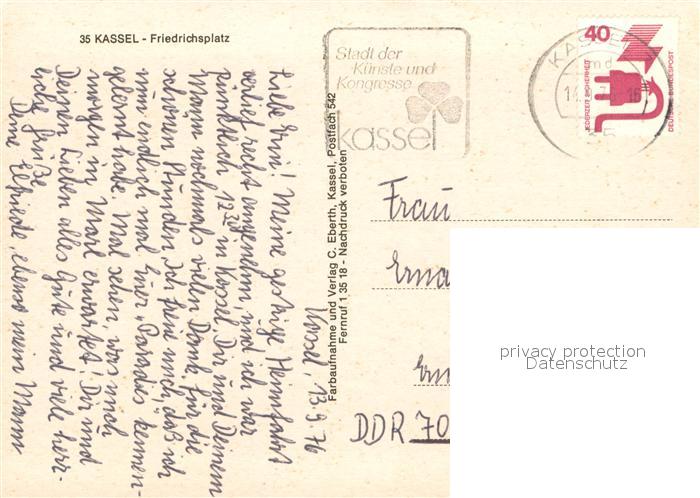 35 KASSEL - Friedrichsplatz
Stadt der
Künste und
Kongresse
kassel
KASSEL
40
JEDERZEIT SICHERHEIT
DEUTSCHE BUNDESPOST
Farbaufnahme und Verlag C. Eberth, Kassel, Postfach 542
Fernruf 1 35 18 - Nachdruck verboten
Kassel, 13.9.76
Liebe Erna! Meine gestrige Heimfahrt
verlief recht angenehm, und ich war
pünktlich 17 in Kassel. Dir und Deinem
Mann nochmals vielen Dank für die
schönen Stunden. Ich freue mich, daß ich
nun endlich mal Euer "Paradies" kennen-
gelernt habe. Mal sehen, was mich
morgen in Marl erwartet! Dir und
Deinen Lieben alles Gute und viele herz-
liche Grüße
Deine Elfriede, ebenso mein Mann
Frau
Erna
DDR 70
privacy protection
Datenschutz